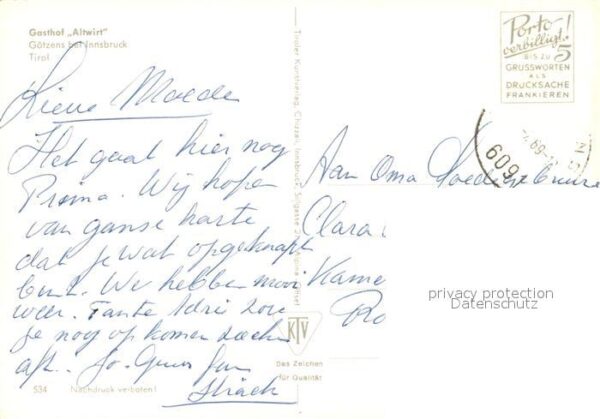 Gasthof „Altwirt"
Götzens bei Innsbruck
Tirol
Lieve Moeder
Het gaat hier nog
Prima. Wij hopen
van ganse harte
dat je wat opgeknapt
bent. We hebben mooi
weer. Tante Adrie zou
je nog op komen zoeken
Tiroler Kunstverlag, Chizzali, Innsbruck
Porto
verbilligt!
5
BIS ZU
GRUSSWORTEN
ALS
DRUCKSACHE
FRANKIEREN
609
Aan Oma
Clara
Kame
Ro
privacy protection
Datenschutz
KTV
Das Zeichen
für Qualität
534 Nachdruck verboten!